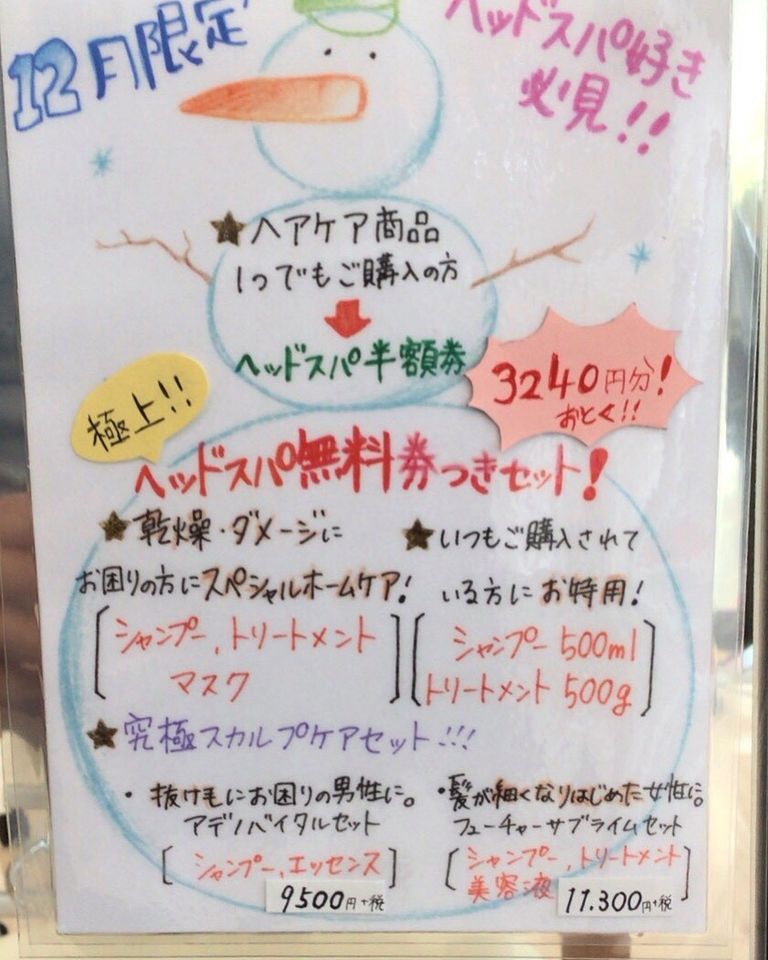 12月限定
ヘッドスパ好き
必見!!
★ヘアケア商品
1つでもご購入の方
ヘッドスパ半額券
3240円分!
おとく!!
極上!!
ヘッドスパ無料券つきセット!
★乾燥・ダメージに
お困りの方にスペシャルホームケア!
[シャンプー,トリートメント
マスク]
★いつもご購入されて
いる方にお特用!
[シャンプー 500ml
トリートメント 500g]
★究極スカルプケアセット!!!
・抜け毛にお困りの男性に。
アデノバイタルセット
[シャンプー,エッセンス]
9500円+税
・髪が細くなりはじめた女性に。
フューチャーサブライムセット
[シャンプー,トリートメント
美容液]
11.300円+税